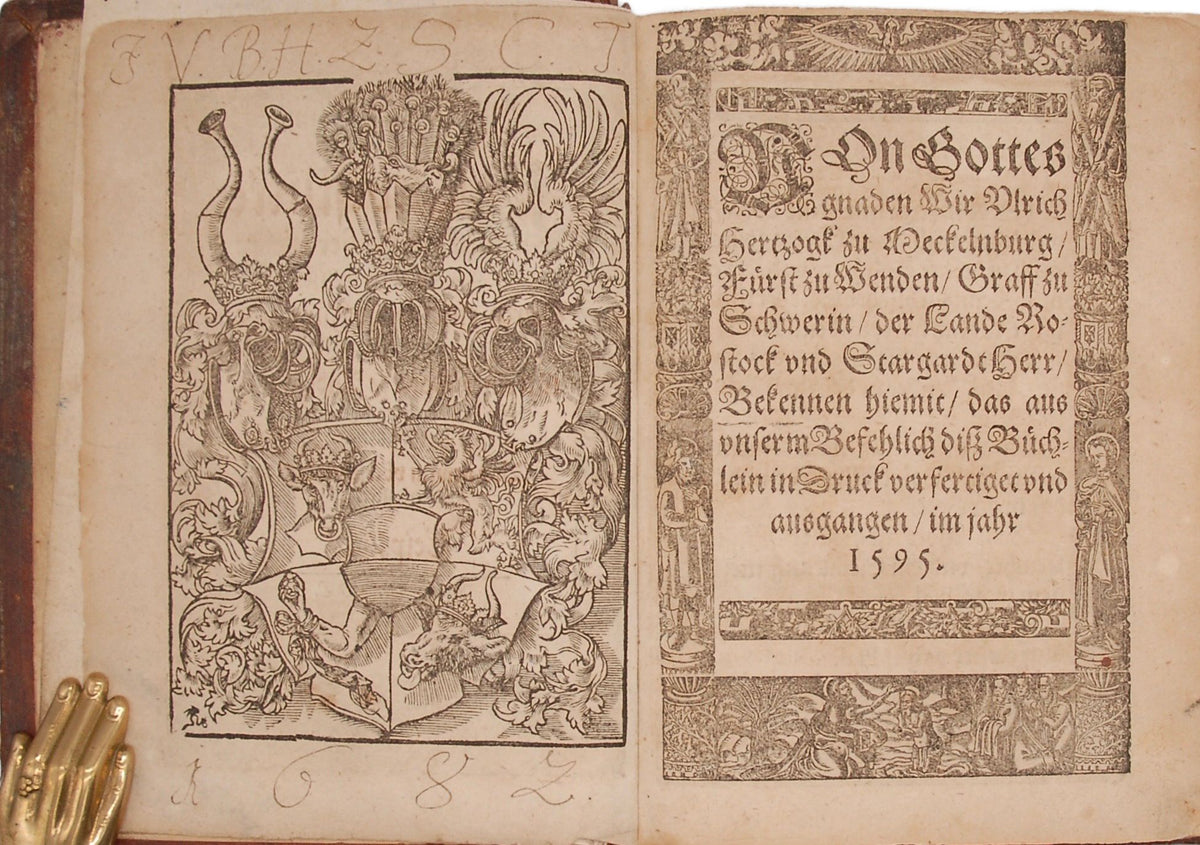 F. V. B. H. Z. S. C. T
1682.
VOn Gottes
gnaden Wir Vlrich
Hertzogk zu Meckelnburg/
Fürst zu Wenden/ Graff zu
Schwerin/ der Lande Ro-
stock vnd Stargardt Herr/
Bekennen hiemit/ das aus
vnserm Befehlich diß Büch-
lein in Druck verfertiget vnd
ausgangen/ im jahr
1595.